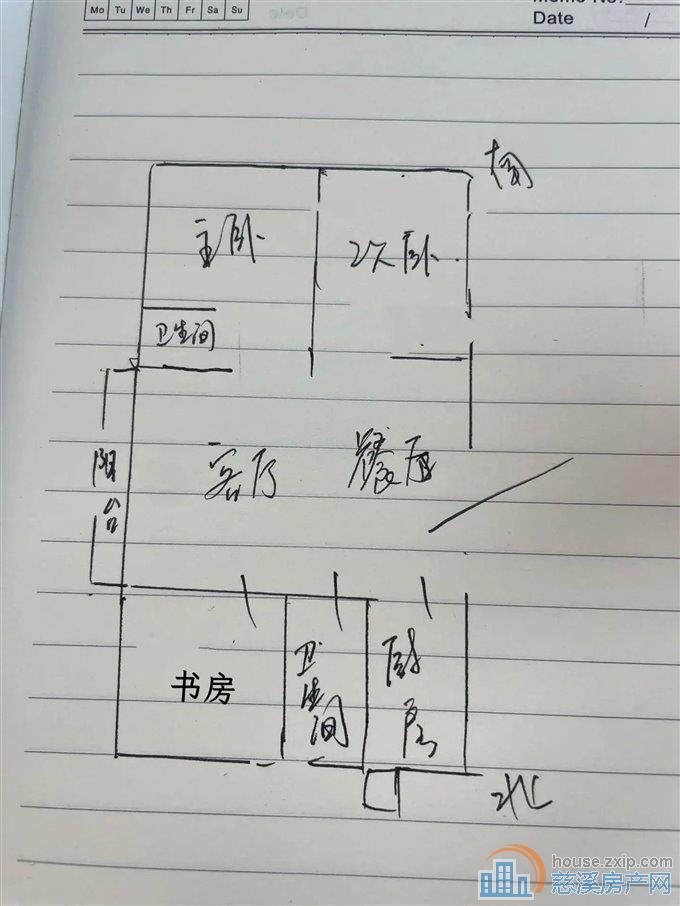 Mo Tu We Th Fr Sa Su
Memo No.
Date /
南
主卧
次卧
卫生间
阳台
客厅
餐厅
书房
卫生间
厨房
北
house.zxip.com
慈溪房产网